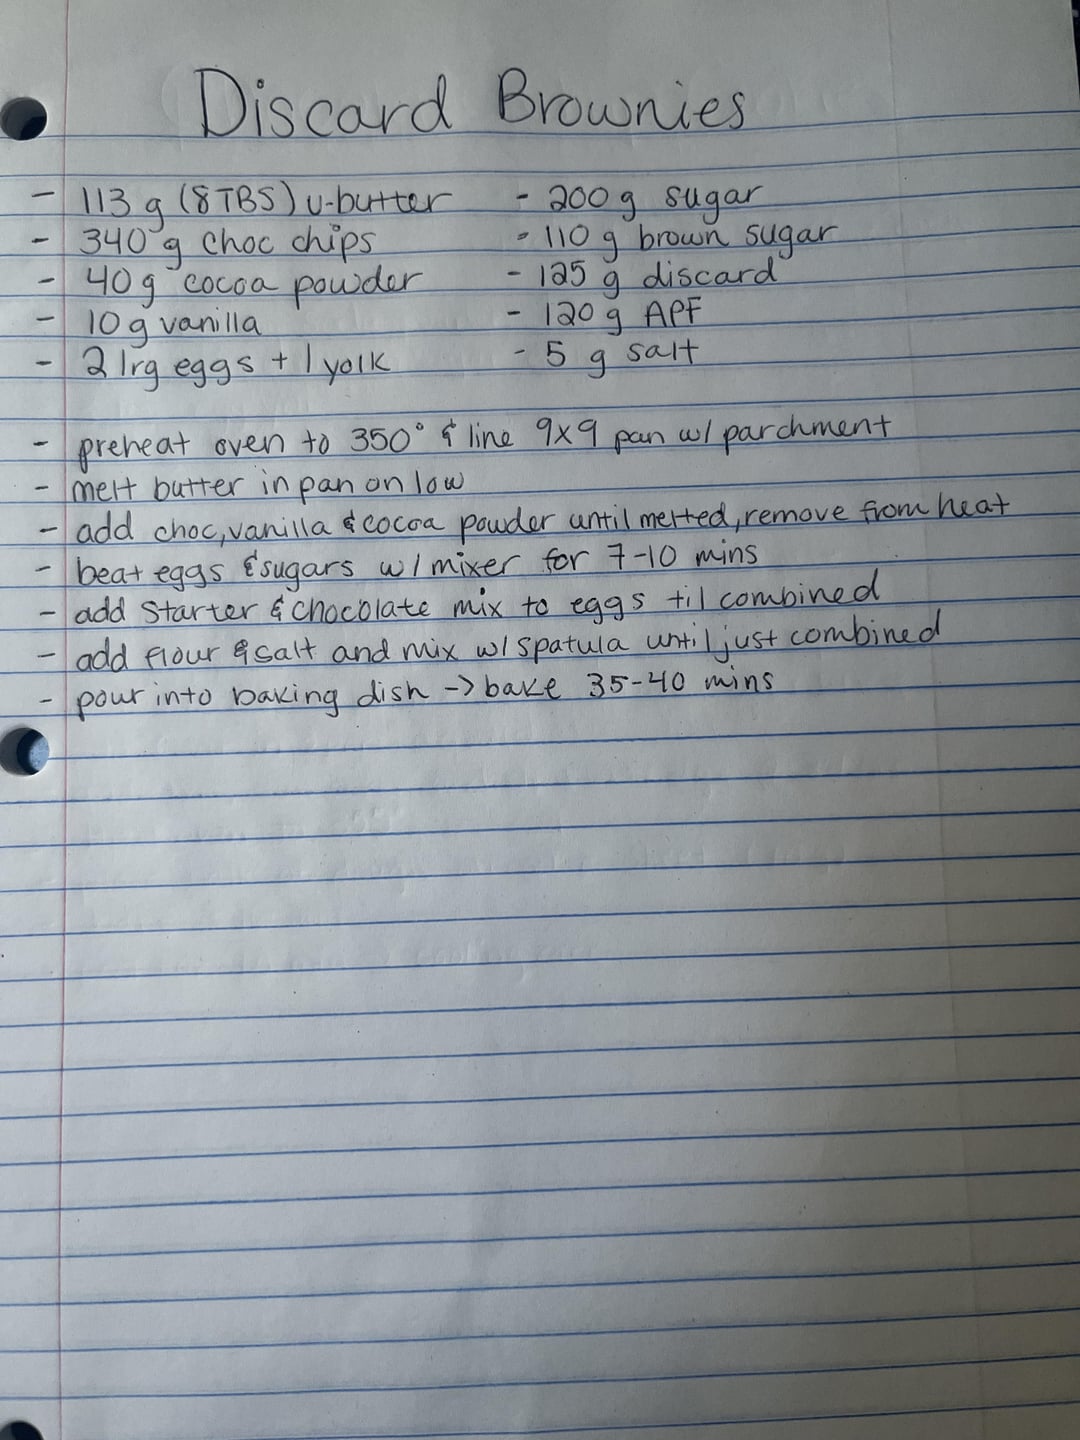 Discard Brownies
- 113 g (8 TBS) u-butter
- 340 g choc chips
- 40 g cocoa powder
- 10 g vanilla
- 2 lrg eggs + 1 yolk
- 200 g sugar
- 110 g brown sugar
- 125 g discard
- 120 g APF
- 5 g salt
- preheat oven to 350° & line 9x9 pan w/ parchment
- melt butter in pan on low
- add choc, vanilla & cocoa powder until melted, remove from heat
- beat eggs & sugars w/ mixer for 7-10 mins
- add starter & chocolate mix to eggs til combined
- add flour & salt and mix w/ spatula until just combined
- pour into baking dish -> bake 35-40 mins